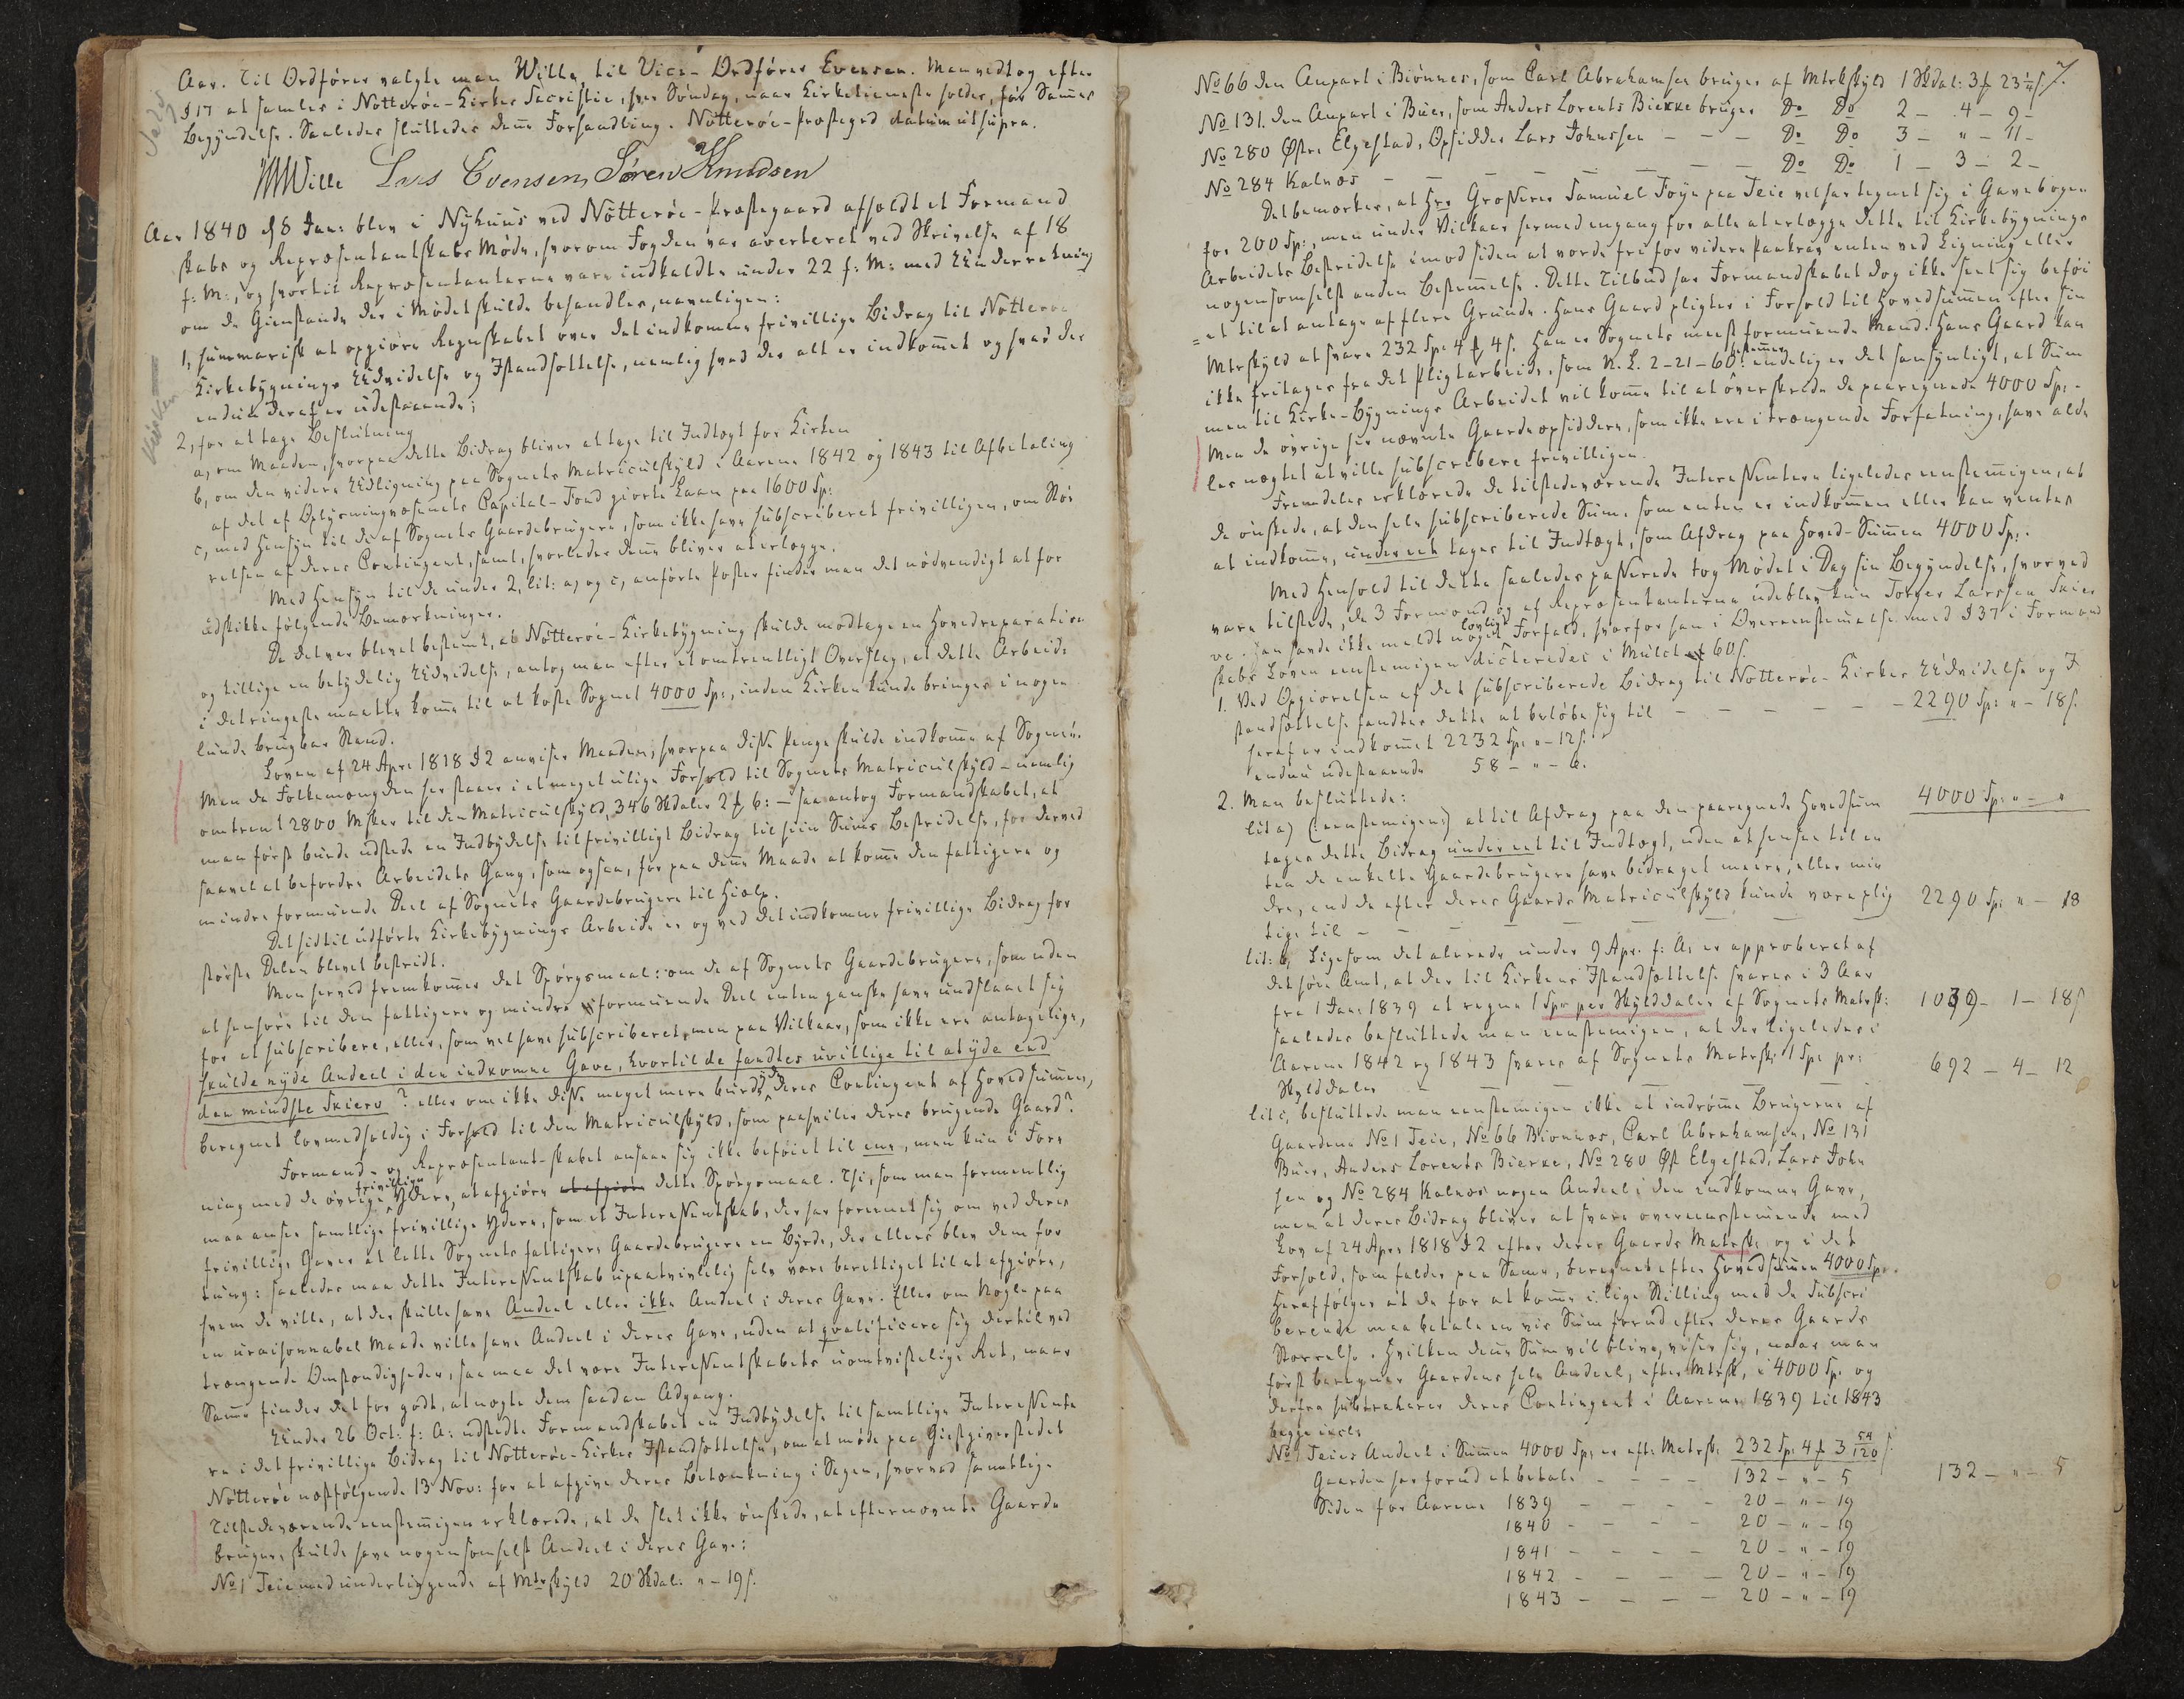 Aar. Til Ordfører valgte man Wille, til Vice-Ordfører Evensen. Man vedtog efter
§ 17 at samles i Nøtterøe-Kirkes Sacristie, hver Søndag, naar Kirketieneste holdes, før Sammes
Begyndelse. Saaledes sluttedes denne Forhandling. Nøtterøe-Præstegrd datum ut supra.
Wille Lars Evensen, Søren Knudsen
Aar 1840 d 8 Jan: blev i Nyhuus ved Nøtterøe-Præstegaard afholdt et Formand
skabs og Repræsentantskabs Møde, hvorom Fogden var averteret ved Skrivelse af 18
f: M:, og hvortil Repræsentanterne vare indkaldte under 22 f: M: med Underretning
om de Gienstande der i Mødet skulde behandles, navnligen:
1, summarisk at opgiøre Regnskabet over det indkomne frivillige Bidrag til Nøtterøe
Kirkebygnings Udvidelse og Istandsættelse, nemlig hvad der alt er indkommet og hvad der
endnu deraf er udestaaende;
2, for at tage Beslutning
a, om Maaden, hvorpaa dette Bidrag bliver at tage til Indtægt for Kirken
b, om den videre Udligning paa Sognets Matriculskyld i Aarene 1842 og 1843 til Afbetaling
af det af Oplysningvæsenets Capital-Fond giorte Laan paa 1600 Sp:
c, med Hensyn til de af Sognets Gaardebrugere, som ikke have subscriberet frivilligen, om Stør
relsen af deres Contingent, samt, hvorledes denne bliver at erlægge.
Med Hensyn til de under 2, lit: a, og c, anførte Poster finder man det nødvendigt at for
udskikke følgende Bemærkninger.
Da det var blevet bestemt, at Nøtterøe-Kirkebygning skulde modtage en Hovedreparation
og tillige en betydelig Udvidelse, antog man efter et omtrentligt Overslag, at dette Arbeide
i det ringeste maatte komme til at koste Sognet 4000 Sp:, inden Kirken kunde bringes i nogen
lunde brugbar Stand.
Loven af 24 Apr: 1818 § 2 anviser Maaden, hvorpaa disse Penge skulde indkomme af Sognet.
Men da Folkemængden her staaer i et meget ulige Forhold til Sognets Matriculskyld - nemlig
omtrent 2800 Msker til den Matriculskyld, 346 Skdaler 2 # 6: - saa antog Formandskabet, at
man først burde udstede en Indbydelse til frivilligt Bidrag til hiin Sums Bestridelse, for derved
saavel at befordre Arbeidets Gang, som ogsaa, for paa denne Maade at komme den fattigere og
mindre formuende Deel af Sognets Gaardebrugere til Hielp.
Det hidtil udførte Kirkebygnings Arbeide er og ved det indkomne frivillige Bidrag for
største Delen blevet bestridt.
Men herved fremkommer det Spørgsmaal: om de af Sognets Gaardebrugere, som uden
at henhøre til den fattigere og mindre formuende Deel enten ganske have undslaaet sig
for at subscribere, eller, som vel have subscriberet, men paa Vilkaar, som ikke ere antagelige,
skulde nyde Andeel i den indkomne Gave, hvortil de fandtes uvillige til at yde end
den mindste Skierv? eller om ikke disse meget mere burde yde deres Contingent af Hovedsummen,
beregnet lovmedholdig i Forhold til den Matriculskyld, som paahviler deres brugende Gaard?
Formand- og Repræsentant-skabet ansaae sig ikke beføiet til ene, men kun i Fore
ning med de øvrige frivillige Ydere, at afgiøre at afgiøre dette Spørgsmaal. Thi, som man formentlig
maa ansee samtlige frivillige Ydere, som et Interessentskab, der har forenet sig om ved deres
frivillige Gaver at lette Sognets fattigere Gaardebrugere en Byrde, der ellers blev dem for
tung: saaledes maa dette Interessentskab upaatvivlelig selv være berettiget til at afgiøre,
hvem de ville, at der skulle have Andeel eller ikke Andeel i deres Gave. Eller om Nogle paa
en uraisonnabel Maade ville have Andeel i deres Gave, uden at qvalificere sig dertil ved
trængende Omstændigheder, saa maa det være Interessentskabets uomtvistelige Ret, naar
Samme finder det for godt, at nægte dem saadan Adgang.
Under 26 Oct: f: A: udstedte Formandskabet en Indbydelse til samtlige Interessente
re i det frivillige Bidrag til Nøtterøe-Kirkes Istandsættelse, om at møde paa Giestgiverstedet
Nøtterøe næstfølgende 13 Nov: for at afgive deres Betænkning i Sagen, hvorved samtlige
Tilstedeværende eenstemmigen erklærede, at de slet ikke ønskede, at efternævnte Gaarde
brugere, skulde have nogensomhelst Andeel i deres Gave:
No 1 Teie med underliggende af Mtrskyld 20 Skdal: " - 19 s.
7.
No 66 den Anpart i Biønnes, som Carl Abrahamsen bruger af Mtrkskyld 1 Skdal: 3 # 23 1/4 s
No 131. den Anpart i Buer, som Anders Lorents Bierke bruger Do Do 2 - 4 - 9 -
No 280 Østre Elgestad, Opsidder Lars Johnssen - - - Do Do 3 - " - 11 -
No 284 Kalnæs - - - - - - - Do Do 1 - 3 - 2 -
Det bemærkes, at Hr Grosserer Samuel Foyn paa Teie vel har tegnet sig i Gavebogen
for 200 Sp:, men under Vilkaar hermed engang for alle at erlægge dette til Kirkebygnings
Arbeidets Bestridelse imod siden at vorde fri for videre Paakrav enten ved Ligning eller
nogensomhelst anden Bestemmelse. Dette Tilbud har Formandskabet dog ikke seet sig beføi
=et til at antage af flere Grunde. Hans Gaard pligter i Forhold til Hovedsummen efter sin
Mtrskyld at svare 232 Sp: 4 # 4 s. Han er Sognets meest formuende Mand. Hans Gaard kan
ikke fritages fra det Pligtarbeide, som N. L. 2-21-60 bestemmer: endelig er det sansynligt, at Sum
men til Kirke-Bygnings Arbeidet vil komme til at overskrede de paaregnede 4000 Sp: -
Men de øvrige her nævnte Gaardeopsiddere, som ikke ere i trængende Forfatning, have alde
les nægtet at ville subscribere frivilligen.
Fremdeles erklærede de tilstedeværende Interessentere ligeledes eenstemmigen, at
de ønskede, at den hele subscriberede Sum, som enten er indkommen eller kan ventes
at indkomme, under eet tages til Indtægt, som Afdrag paa Hoved-Summen 4000 Sp:.
Med Henhold til dette saaledes passerede tog Mødet i Dag sin Begyndelse, hvorved
vare tilstede, de 3 Formænd og af Repræsentanterne udeblev kun Torger Larssen Skier
ve. Han havde ikke meldt noget lovligt Forfald, hvorfor han i Overeenstemmelse med § 37 i Formand
skabs Loven eenstemmigen dicteredes i Mulct 60 s.
1. Ved Opgiørelsen af det subscriberede Bidrag til Nøtterøe-Kirkes Udvidelse og I
standsættelse fandtes dette at beløbe sig til - - - - - - 2290 Sp: " - 18 s.
heraf er indkommet 2232 Sp: " - 12 s.
endnu udestaaende 58 - " - 6.
2. Man besluttede:
lit a) (: eenstemmigen:) at til Afdrag paa den paaregnede Hovedsum 4000 Sp: " - "
tages dette Bidrag under eet til Indtægt, uden at hensee til en
ten de enkelte Gaardebrugere have bidraget meere, eller min
dre, end de efter deres Gaards Matriculskyld kunde være plig
tige til - - - - - - 2290 Sp: " - 18
lit: b, Ligesom det allerede under 9 Apr. f: A: er approberet af
det høie Amt, at der til Kirkens Istandsættelse svares i 3 Aar
fra 1 Jan: 1839 at regne 1 Spr per Skylddaler af Sognets Matrsk: 1039 - 1 - 18 s
saaledes besluttede man eenstemmigen, at der ligeledes i
Aarene 1842 og 1843 svares af Sognets Matrsk: 1 Sp: pr:
Skylddaler - - - - - 692 - 4 - 12
lit c, besluttede man eenstemmigen ikke at indrømme Brugerne af
Gaardene No 1 Teie, No 66 Biønnes, Carl Abrahamsen, No 131
Buer, Anders Lorents Bierke, No 280 Øst Elgestad, Lars John
sen og No 284 Kalnæs nogen Andeel i den indkomne Gave,
men at deres Bidrag bliver at svare overeenstemmende med
Lov af 24 Apr: 1818 § 2 efter deres Gaards Matrsk: og i det
Forhold, som falder paa Samme, beregnet efter Hovedsummen 4000 Sp:.
Heraf følger at de for at komme i lige Stilling med de Subscri
berende maa betale en vis Sum forud efter deres Gaards
Størrelse. Hvilken denne Sum vil blive, viser sig, naar man
først beregner Gaardens hele Andeel, efter Mtrsk, i 4000 Sp: og
derfra subtraherer deres Contingent i Aarene 1839 til 1843
begge incl:
No 1 Teies Andeel i Summen 4000 Sp: er eft: Matrsk: 232 Sp: 4 # 3 54/120 s
Gaarden har forud at betale - - - - 132 - " - 5 132 - " - 5
Siden for Aarene 1839 - - - - 20 - " - 19
1840 - - - - 20 - " - 19
1841 - - - - 20 - " - 19
1842 - - - - 20 - " - 19
1843 - - - - 20 - " - 19